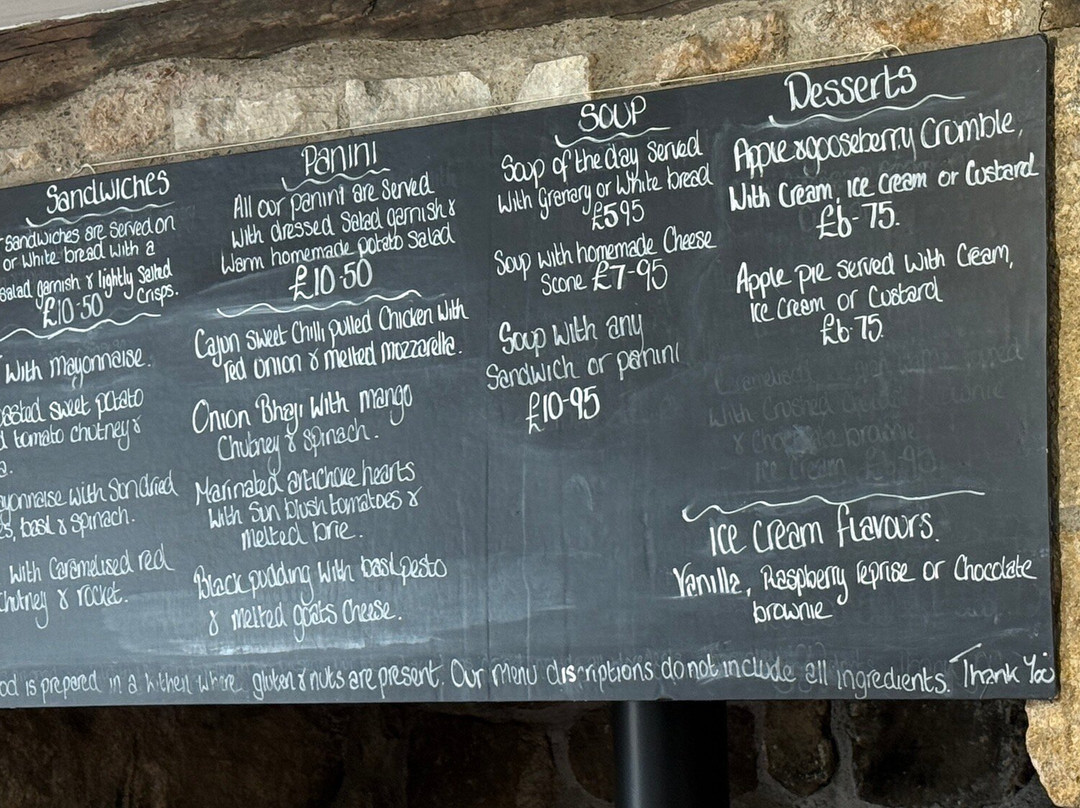 Sandwiches
sandwiches are served on
or white bread with a
salad garnish & lightly salted
£10·50 Crisps.
With Mayonnaise.
sweet potato
tomato chutney &
with Sundried
basil & spinach.
With Caramelised red
chutney & rocket.
Panini
All our panini are served
With dressed Salad garnish &
Warm homemade potato Salad
£10·50
Cajun sweet Chilli pulled Chicken with
red Onion & melted mozzarella.
Onion Bhaji With mango
Chutney & spinach.
Marinated artichoke hearts
With Sun blush tomatoes &
melted brie.
Black pudding With basil pesto
& melted goats Cheese.
SOUP
Soup of the day Served
With Granary or White bread
£5 95
Soup with homemade Cheese
Scone £7-95
Soup With any
Sandwich or panini
£10-95
Desserts
Apple & gooseberry Crumble,
With Cream, ice cream or Custard
£6-75.
Apple pie served with Cream,
Ice Cream or Custard
£6·75.
With Crushed
& Chocolate brownie
Ice Cream
Ice Cream flavours.
Vanilla, Raspberry reprise or Chocolate
brownie
is prepared in a kitchen where gluten & nuts are present. Our menu discriptions do not include all ingredients. Thank You